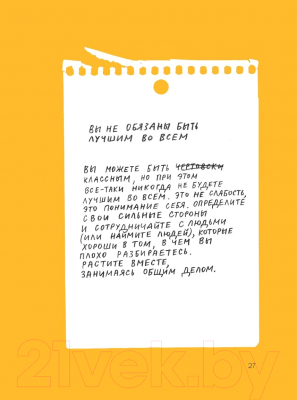 ВЫ НЕ ОБЯЗАНЫ БЫТЬ
ЛУЧШИМ ВО ВСЕМ
ВЫ МОЖЕТЕ БЫТЬ ЧЕРТОВСКИ
КЛАССНЫМ, НО ПРИ ЭТОМ
ВСЕ-ТАКИ НИКОГДА НЕ БУДЕТЕ
ЛУЧШИМ ВО ВСЕМ. ЭТО НЕ СЛАБОСТЬ,
ЭТО ПОНИМАНИЕ СЕБЯ. ОПРЕДЕЛИТЕ
СВОИ СИЛЬНЫЕ СТОРОНЫ
И СОТРУДНИЧАЙТЕ С ЛЮДЬМИ
(ИЛИ НАЙМИТЕ ЛЮДЕЙ), КОТОРЫЕ
ХОРОШИ В ТОМ, В ЧЕМ ВЫ
ПЛОХО РАЗБИРАЕТЕСЬ.
РАСТИТЕ ВМЕСТЕ,
ЗАНИМАЯСЬ ОБЩИМ ДЕЛОМ.
27
21vek.by